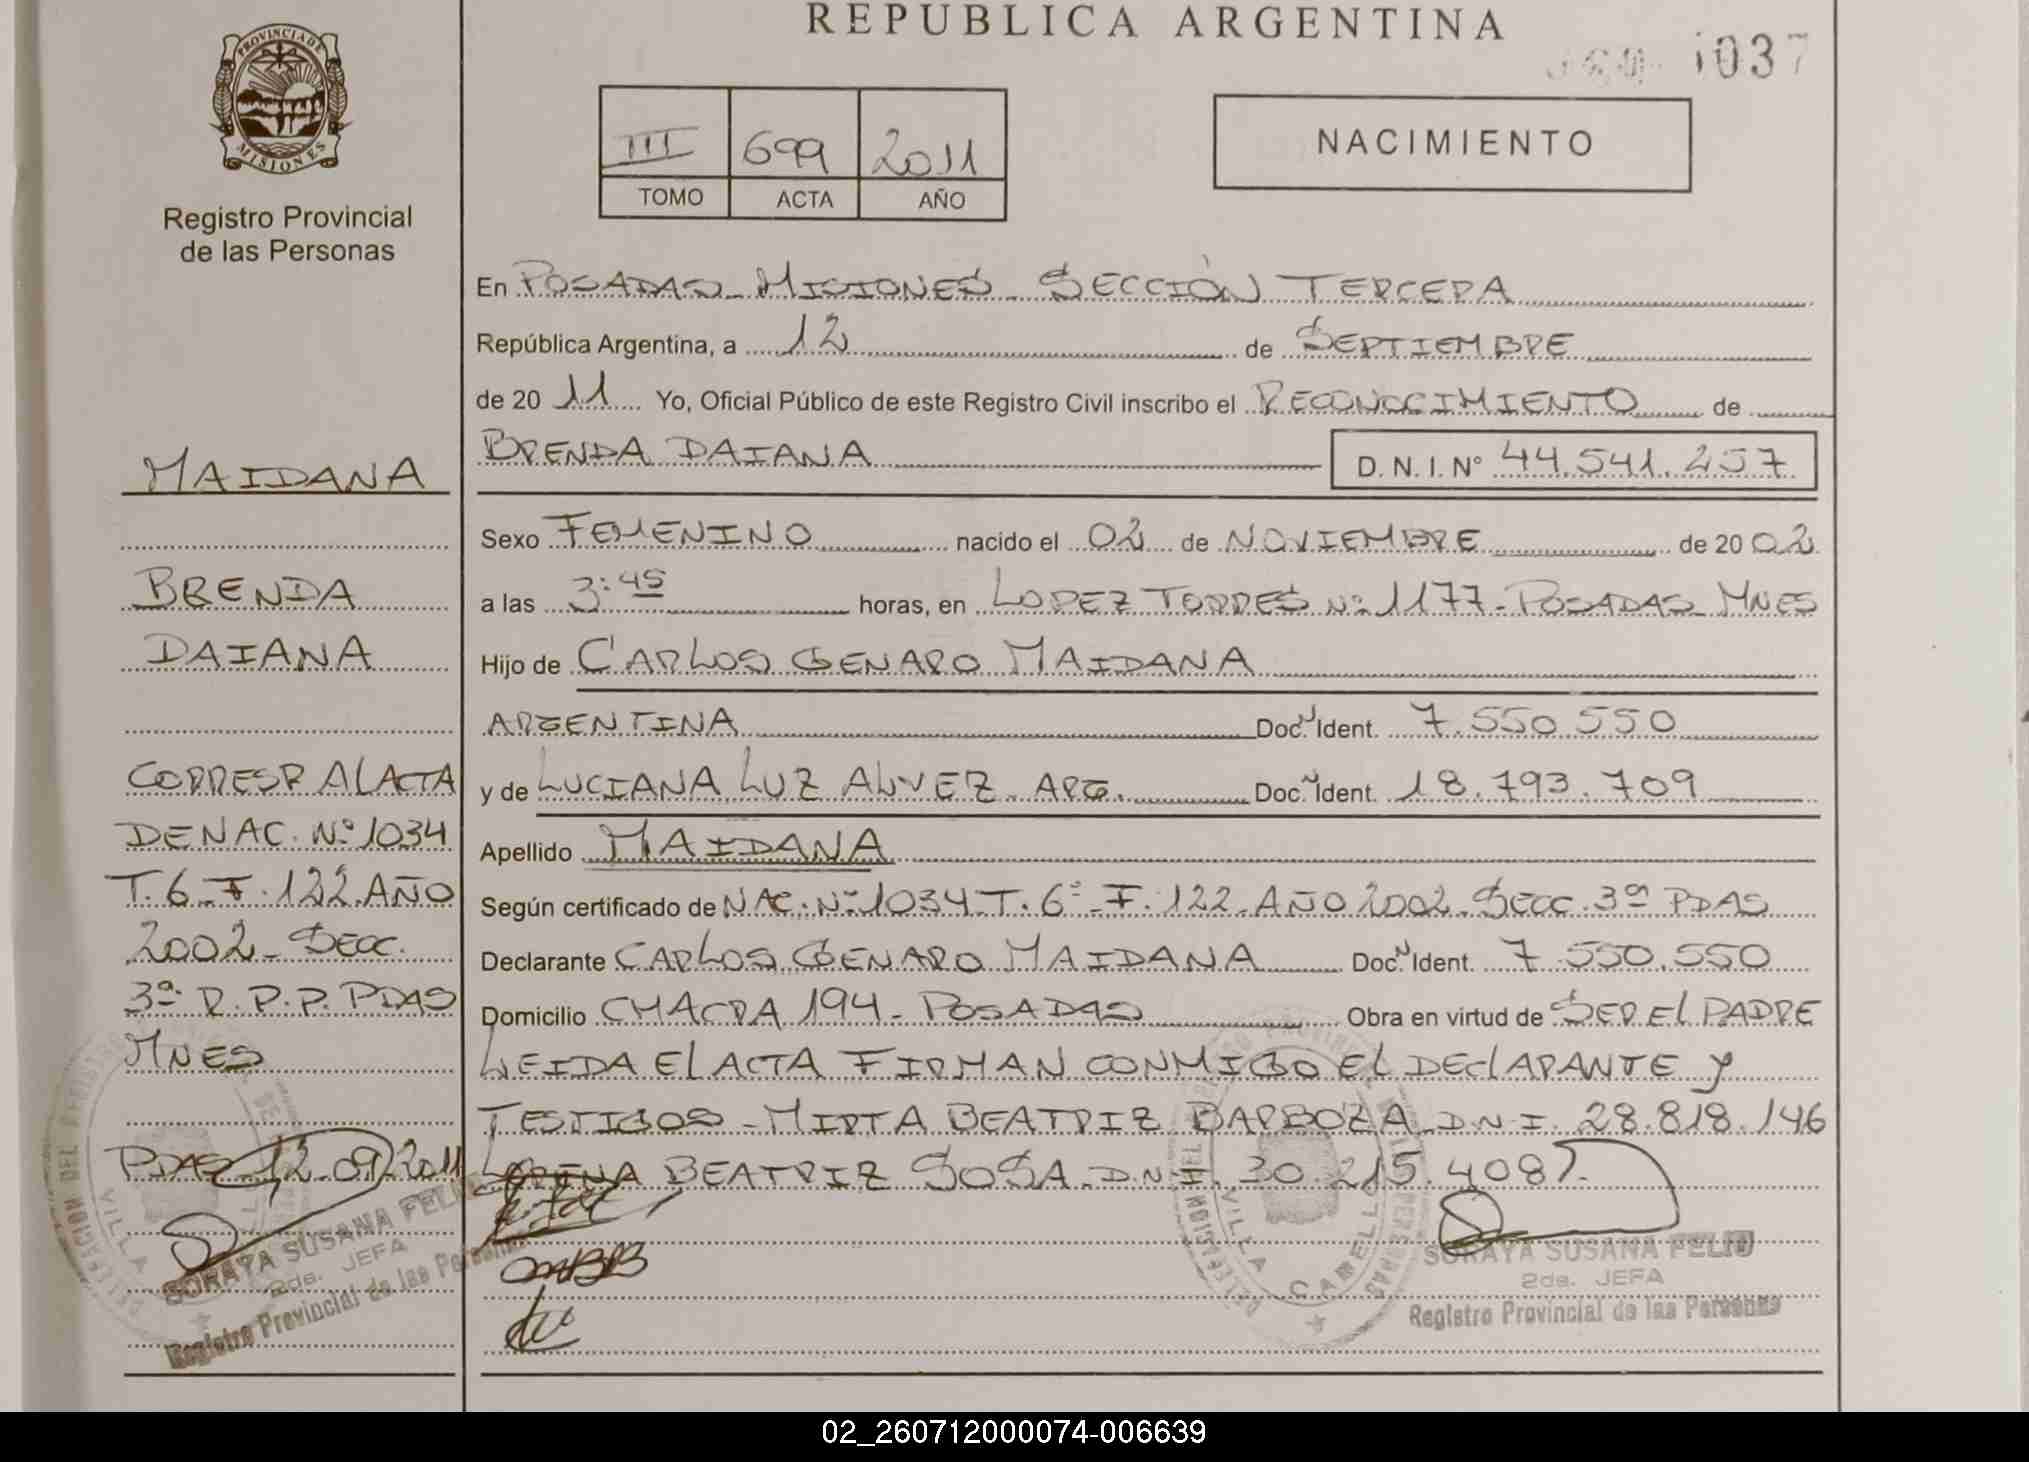 REPUBLICA ARGENTINA
1037
PROVINCIA DE
MISIONES
Registro Provincial
de las Personas
III 699 2011
TOMO ACTA AÑO
NACIMIENTO
En POSADAS MISIONES SECCIÓN TERCERA
República Argentina, a 12 de SEPTIEMBRE
de 2011 Yo, Oficial Público de este Registro Civil inscribo el RECONOCIMIENTO de
BRENDA DAIANA D. N. I. Nº 44.541.257
Sexo FEMENINO nacido el 02 de NOVIEMBRE de 2002
a las 3:45 horas, en LOPEZ TORRES Nº 1177 - POSADAS MNES
Hijo de CARLOS GENARO MAIDANA
ARGENTINA Doc. Ident. 7.550.550
y de LUCIANA LUZ ALVEZ ARG. Doc. Ident. 18.793.709
Apellido MAIDANA
Según certificado de NAC. Nº 1034 T. 6º F. 122 AÑO 2002 Secc. 3ª PDAS
Declarante CARLOS GENARO MAIDANA Doc. Ident. 7.550.550
Domicilio CHACRA 194 - POSADAS Obra en virtud de SER EL PADRE
LEIDA EL ACTA FIRMAN CONMIGO EL DECLARANTE y
TESTIGOS - MIRTA BEATRIZ BARBOZA D.N.I. 28.818.146
LORENA BEATRIZ SOSA D.N.I. 30.215.408
SORAYA SUSANA FELIU
2da. JEFA
Registro Provincial de las Personas
MAIDANA
BRENDA
DAIANA
CORRESP AL ACTA
DE NAC. Nº 1034
T. 6 F. 122 AÑO
2002 - Secc.
3ª R. P. P. PDAS
MNES
PDAS 12.09.2011
SORAYA SUSANA FELIU
2da. JEFA
Registro Provincial de las Personas
DELEGACION DEL REGISTRO
VILLA CABELLO
02_260712000074-006639